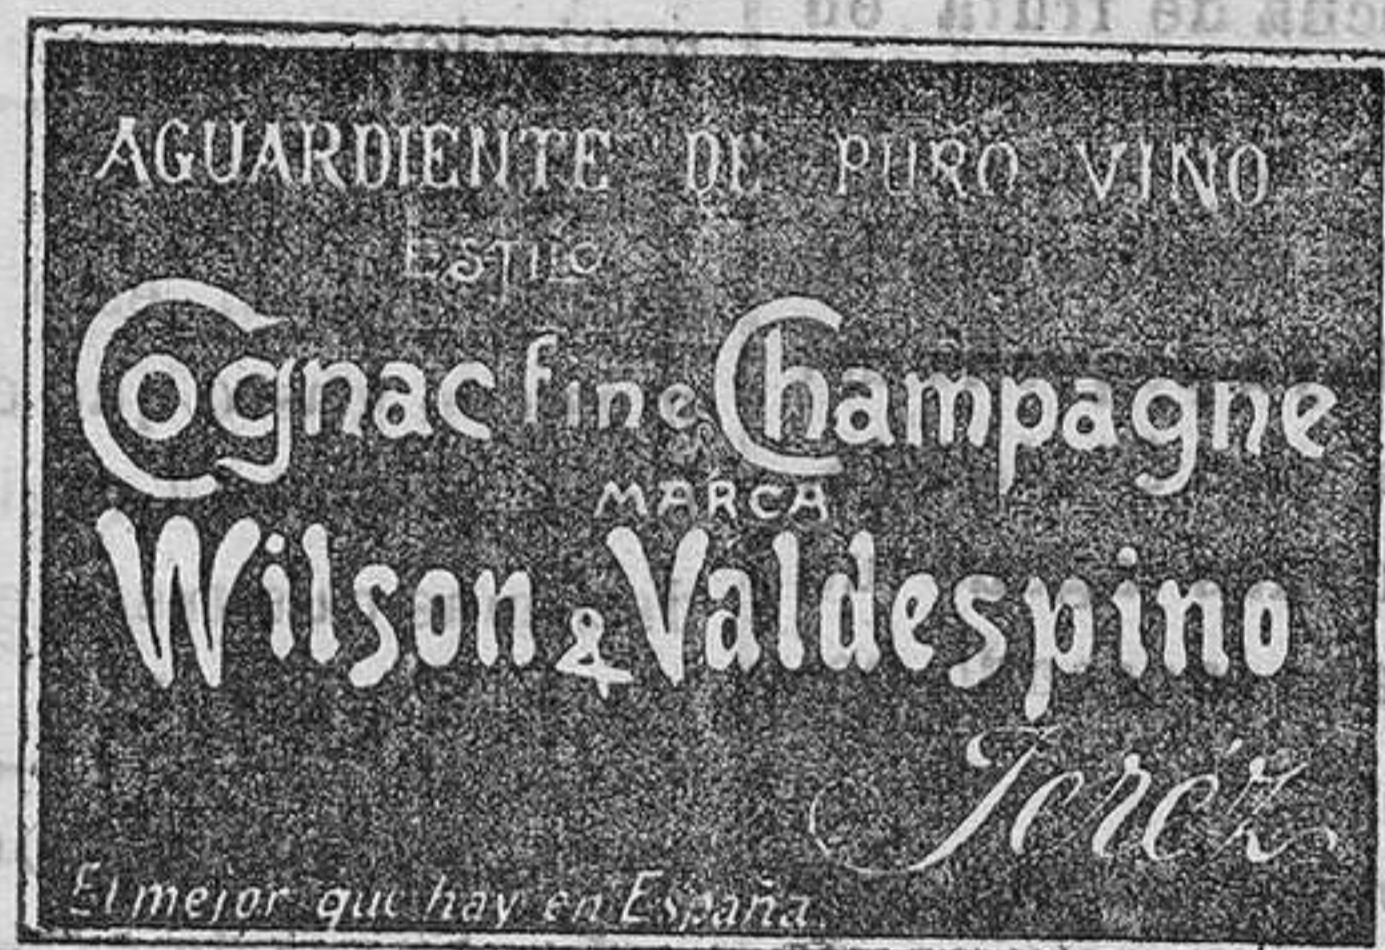 AGUARDIENTE DE PURO VINO
ESTILO
Cognac fine Champagne
MARCA
Wilson & Valdespino
Jeréz
El mejor que hay en España.